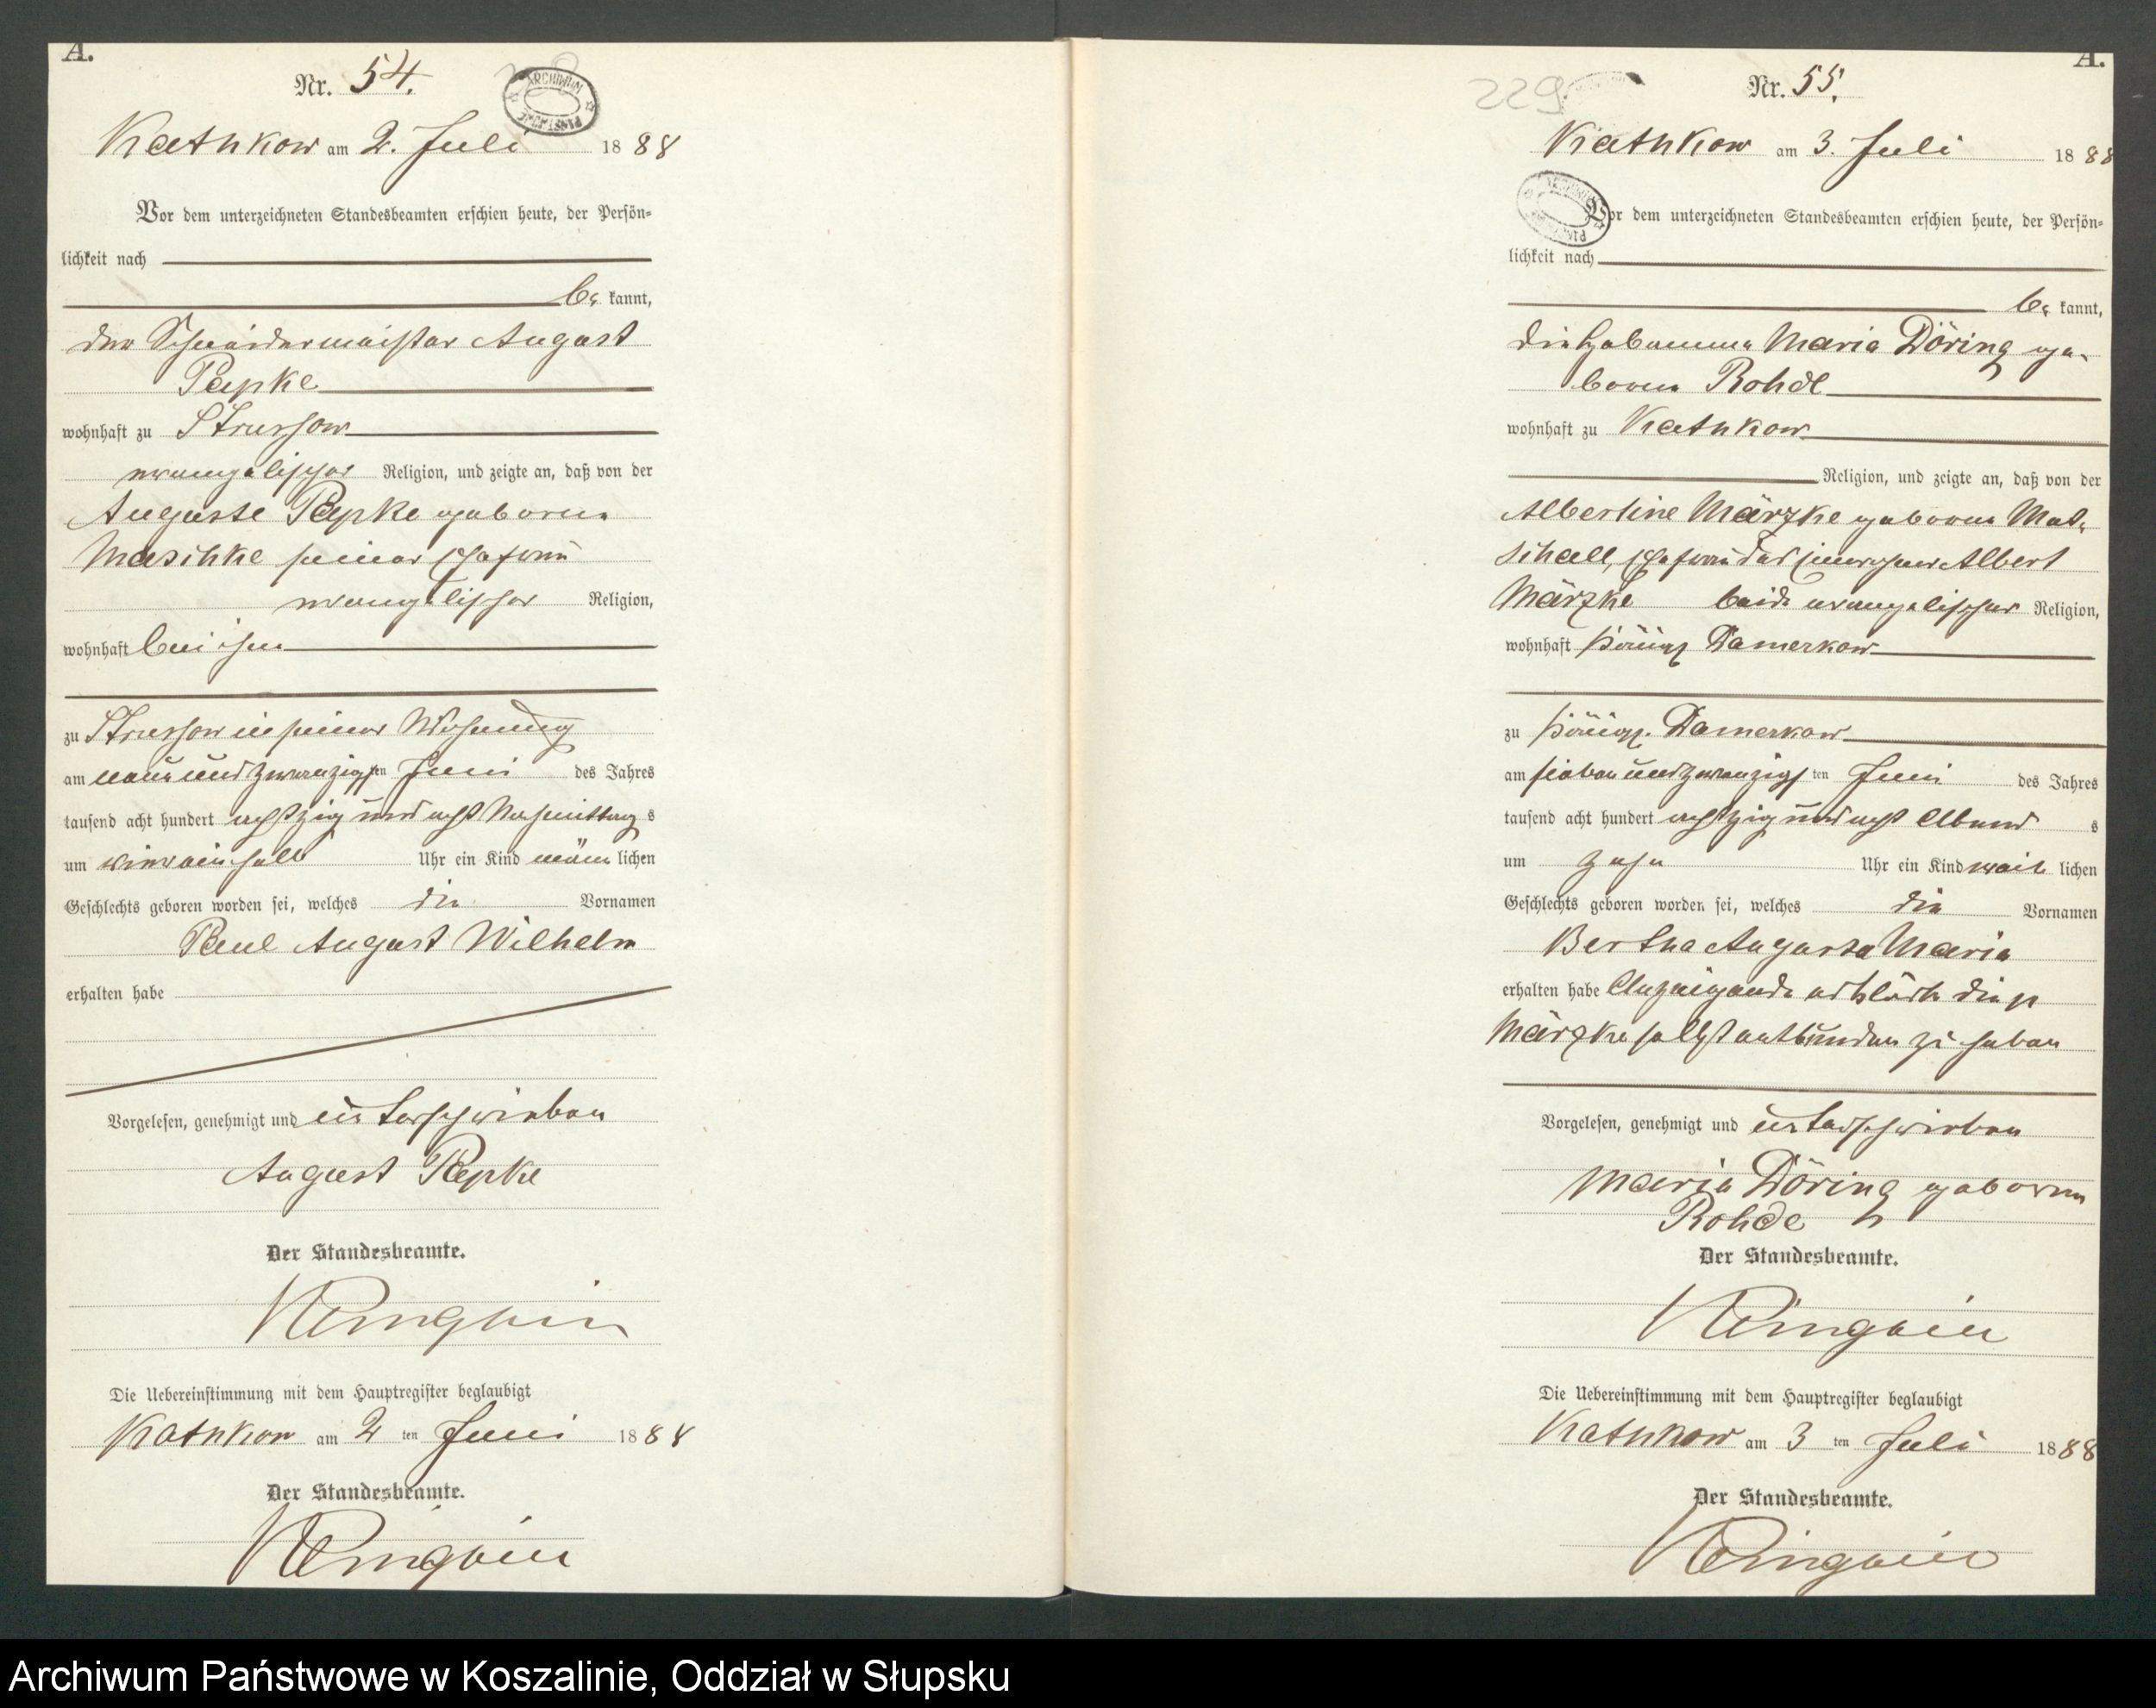 A.
Nr. 54.
ARCHIWUM PAŃSTWOWE
Kathkow am 2. Juli 1888
Vor dem unterzeichneten Standesbeamten erschien heute, der Persön-
lichkeit nach
be kannt,
der Schneidermeister August
Papke
wohnhaft zu Strussow
evangelischer Religion, und zeigte an, daß von der
Auguste Papke geborene
Maschke seiner Ehefrau
evangelischer Religion,
wohnhaft bei ihm
zu Strussow in seiner Wohnung
am neun und zwanzigsten Juni des Jahres
tausend acht hundert achtzig und acht Nachmittags
um Uhr ein Kind männlichen
Geschlechts geboren worden sei, welches die Vornamen
Paul August Wilhelm
erhalten habe
Vorgelesen, genehmigt und unterschrieben
August Papke
Der Standesbeamte.
Die Uebereinstimmung mit dem Hauptregister beglaubigt
Kathkow am 2 ten Juni 1888
Der Standesbeamte.
A.
229
Nr. 55.
Kathkow am 3. Juli 1888
Vor dem unterzeichneten Standesbeamten erschien heute, der Persön-
lichkeit nach
be kannt,
die Hebamme Maria Döring ge-
borene Rohde
wohnhaft zu Kathkow
Religion, und zeigte an, daß von der
Albertine Märzke geborene Mat-
schall, Ehefrau des Einwohner Albert
Märzke beide evangelischer Religion,
wohnhaft Königl. Damerkow
zu Königl. Damerkow
am sieben und zwanzigsten Juni des Jahres
tausend acht hundert achtzig und acht Abends
um zehn Uhr ein Kind weiblichen
Geschlechts geboren worden sei, welches die Vornamen
Bertha Auguste Maria
erhalten habe Anzeigende erklärte diese
Märzke selbst entbunden zu haben
Vorgelesen, genehmigt und unterschrieben
Maria Döring geborene
Rohde
Der Standesbeamte.
Die Uebereinstimmung mit dem Hauptregister beglaubigt
Kathkow am 3 ten Juli 1888
Der Standesbeamte.
Archiwum Państwowe w Koszalinie, Oddział w Słupsku